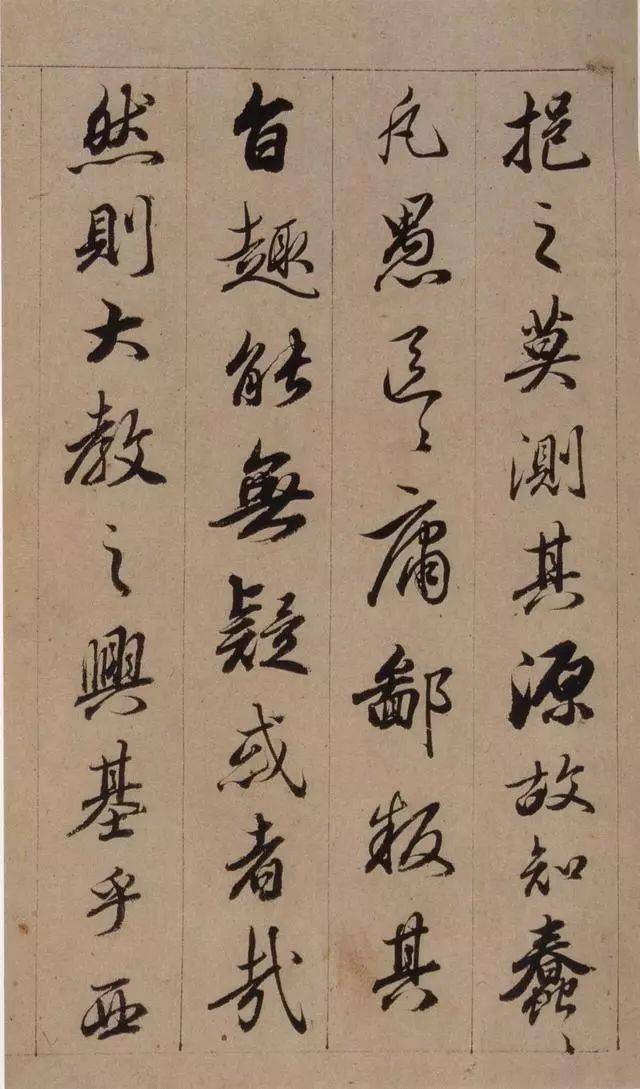 挹之莫測其源故知蠢〻
凡愚區〻庸鄙投其
旨趣能無疑惑者哉
然則大教之興基乎西